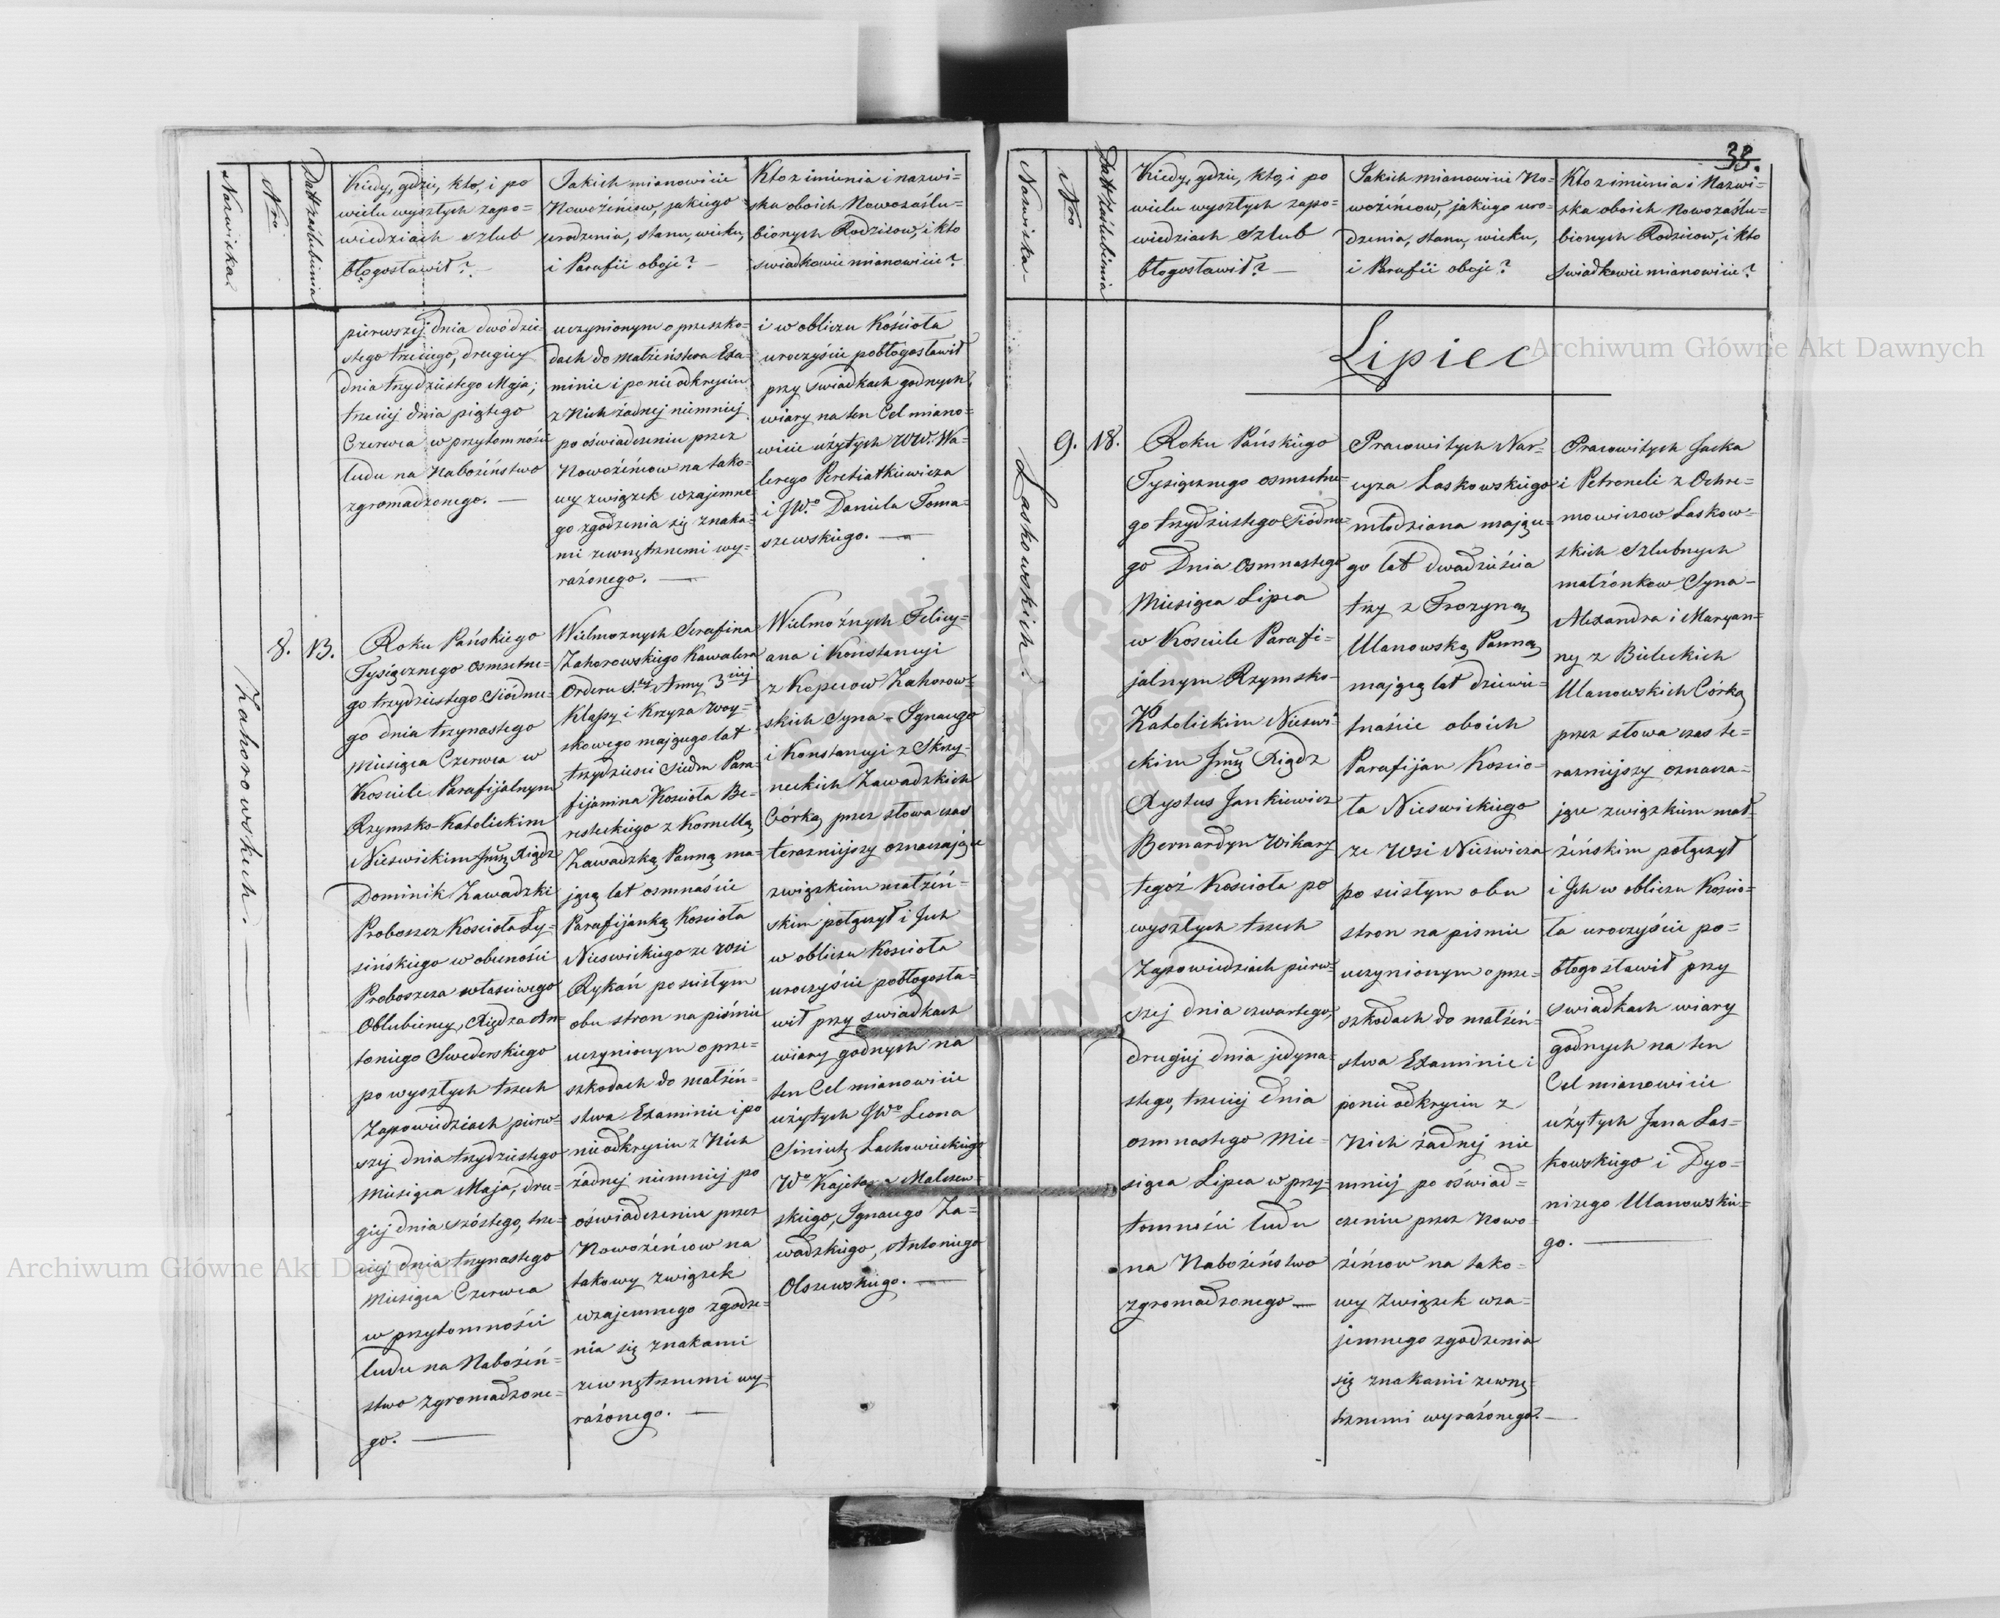 Nazwiska
Nro
Data zaślubienia
Kiedy, gdzie, kto, i po
wielu wyszłych zapo=
wiedziach szlub
błogosławił? —
Jakich mianowicie
Nowożeńcow, jakiego
urodzenia, stanu, wieku,
i Parafii oboje? —
Kto z imienia i nazwi=
ska oboich Nowozaślu=
bionych Rodzicow, i kto
swiadkowie mianowicie?
pierwszej dnia dwódzie=
stego trzeciego, drugiey
dnia trzydziestego Maja;
trzeciej dnia piątego
Czerwca w przytomności
ludu na Nabożeństwo
zgromadzonego. —
uczynionym o przeszko=
dach do małżeństwa Exa=
minie i ponieodkryciu
z Nich żadnej niemniej
po oświadczeniu przez
Nowożeńcow na tako=
wy związek wzajemne=
go zgodzenia się znaka=
mi zewnętrznemi wy=
rażonego. —
i w obliczu Kościoła
uroczyście pobłogosławił
przy swiadkach godnych
wiary na ten Cel miano=
wicie użytych WW. Wa=
lerego Peretiatkiewicza
i JWo. Daniela Toma=
szewskiego. —
Zahorowskich.
8.
13.
Roku Pańskiego
Tysiącznego osmsetne=
go trzydziestego siódme=
go dnia trzynastego
Miesiąca Czerwca w
Kościele Parafijalnym
Rzymsko-Katolickim
Nieswickim Jmść Xiądz
Dominik Zawadzki
Proboszcz Kościoła Ły=
sińskiego w obecności
Proboszcza własciwego
Oblubiency, Xiędza An=
toniego Swederskiego
po wyszłych trzech
Zapowiedziach pierw=
szej dnia trzydziestego
Miesiąca Maja, dru=
giej dnia szóstego, trze=
ciej dnia trzynastego
Miesiąca Czerwca
w przytomności
ludu na Nabożeń=
stwo zgromadzone=
go. —
Wielmożnych Serafina
Zahorowskiego Kawalera
Orderu Stej Anny 3ciej
Klassy i Krzyża woy=
skowego mającego lat
trzydziesci siedm Para=
fijanina Kościoła Be=
resteckiego z Kornellą
Zawadzką Panną ma=
jącą lat osmnaście
Parafijanką Kościoła
Nieswickiego ze wsi
Rykań po scisłym
obu stron na piśmie
uczynionym o prze=
szkodach do małżeń=
stwa Examinie i po
nieodkryciu z Nich
żadnej niemniej po
oświadczeniu przez
Nowożeńcow na
takowy związek
wzajemnego zgodze=
nia się znakami
zewnętrznemi wy=
rażonego. —
Wielmożnych Felicy=
ana i Konstancyi
z Kopciow Zahorow=
skich Syna - Ignacego
i Konstancyi z Skrzy=
neckich Zawadzkich
Córką, przez słowa czas
terazniejszy oznaczające
związkiem małżeń=
skim połączył i Ich
w obliczu Kościoła
uroczyście pobłogosła=
wił przy swiadkach
wiary godnych na
ten Cel mianowicie
użytych JWo Leona
Siniuty Lachowieckiego
Wo Kajetana Malczew=
skiego, Ignacego Za=
wadzkiego, Antoniego
Olszewskiego. —
38.
Nazwiska
Nro
Data zaślubienia
Kiedy, gdzie, kto, i po
wielu wyszłych zapo=
wiedziach szlub
błogosławił? —
Jakich mianowicie No=
wożeńcow, jakiego uro=
dzenia, stanu, wieku,
i Parafii oboje?
Kto z imienia i Nazwi=
ska oboich Nowozaślu=
bionych Rodzicow, i kto
swiadkowie mianowicie?
Lipiec
Laskowskich.
9.
18.
Roku Pańskiego
Tysiącznego osmsetne=
go trzydziestego siódme=
go Dnia osmnastego
Miesiąca Lipca
w Kosciele Parafi=
jalnym Rzymsko-
Katolickim Nieswi=
ckim Jmść Xiądz
Xystus Jankiewicz
Bernardyn Wikary
tegoż Kościoła po
wyszłych trzech
Zapowiedziach pierw=
szej dnia czwartego,
drugiej dnia jedyna=
stego, trzeciej dnia
osmnastego Mie=
siąca Lipca w przy=
tomności ludu
na Nabożeństwo
zgromadzonego —
Pracowitych Nar=
cyza Laskowskiego
młodziana mające=
go lat dwadzieścia
trzy z Frozyną
Ulanowską Panną
mającą lat dziewie=
tnaście oboich
Parafijan Kościo=
ła Nieswickiego
ze wsi Nieswicza
po scisłym obu
stron na pismie
uczynionym o prze=
szkodach do małżeń=
stwa Examinie i
ponieodkryciu z
Nich żadnej nie
mniej po oświad=
czeniu przez Nowo=
żeńcow na tako=
wy Związek wza=
jemnego zgodzenia
się znakami zewnę=
trznemi wyrażonego. —
Pracowitych Jacka
i Petroneli z Ochre=
mowiczow Laskow=
skich szlubnych
małżonkow Syna -
Alexandra i Maryan=
ny z Bieleckich
Ulanowskich Córką
przez słowa czas te=
razniejszy oznacza=
jące związkiem mał=
żeńskim połączył
i Ich w obliczu Kościo=
ła uroczyście po=
błogosławił przy
swiadkach wiary
godnych na ten
Cel mianowicie
użytych Jana Las=
kowskiego i Dyo=
nizego Ulanowskie=
go. —
Archiwum Główne Akt Dawnych
Archiwum Główne Akt Dawnych